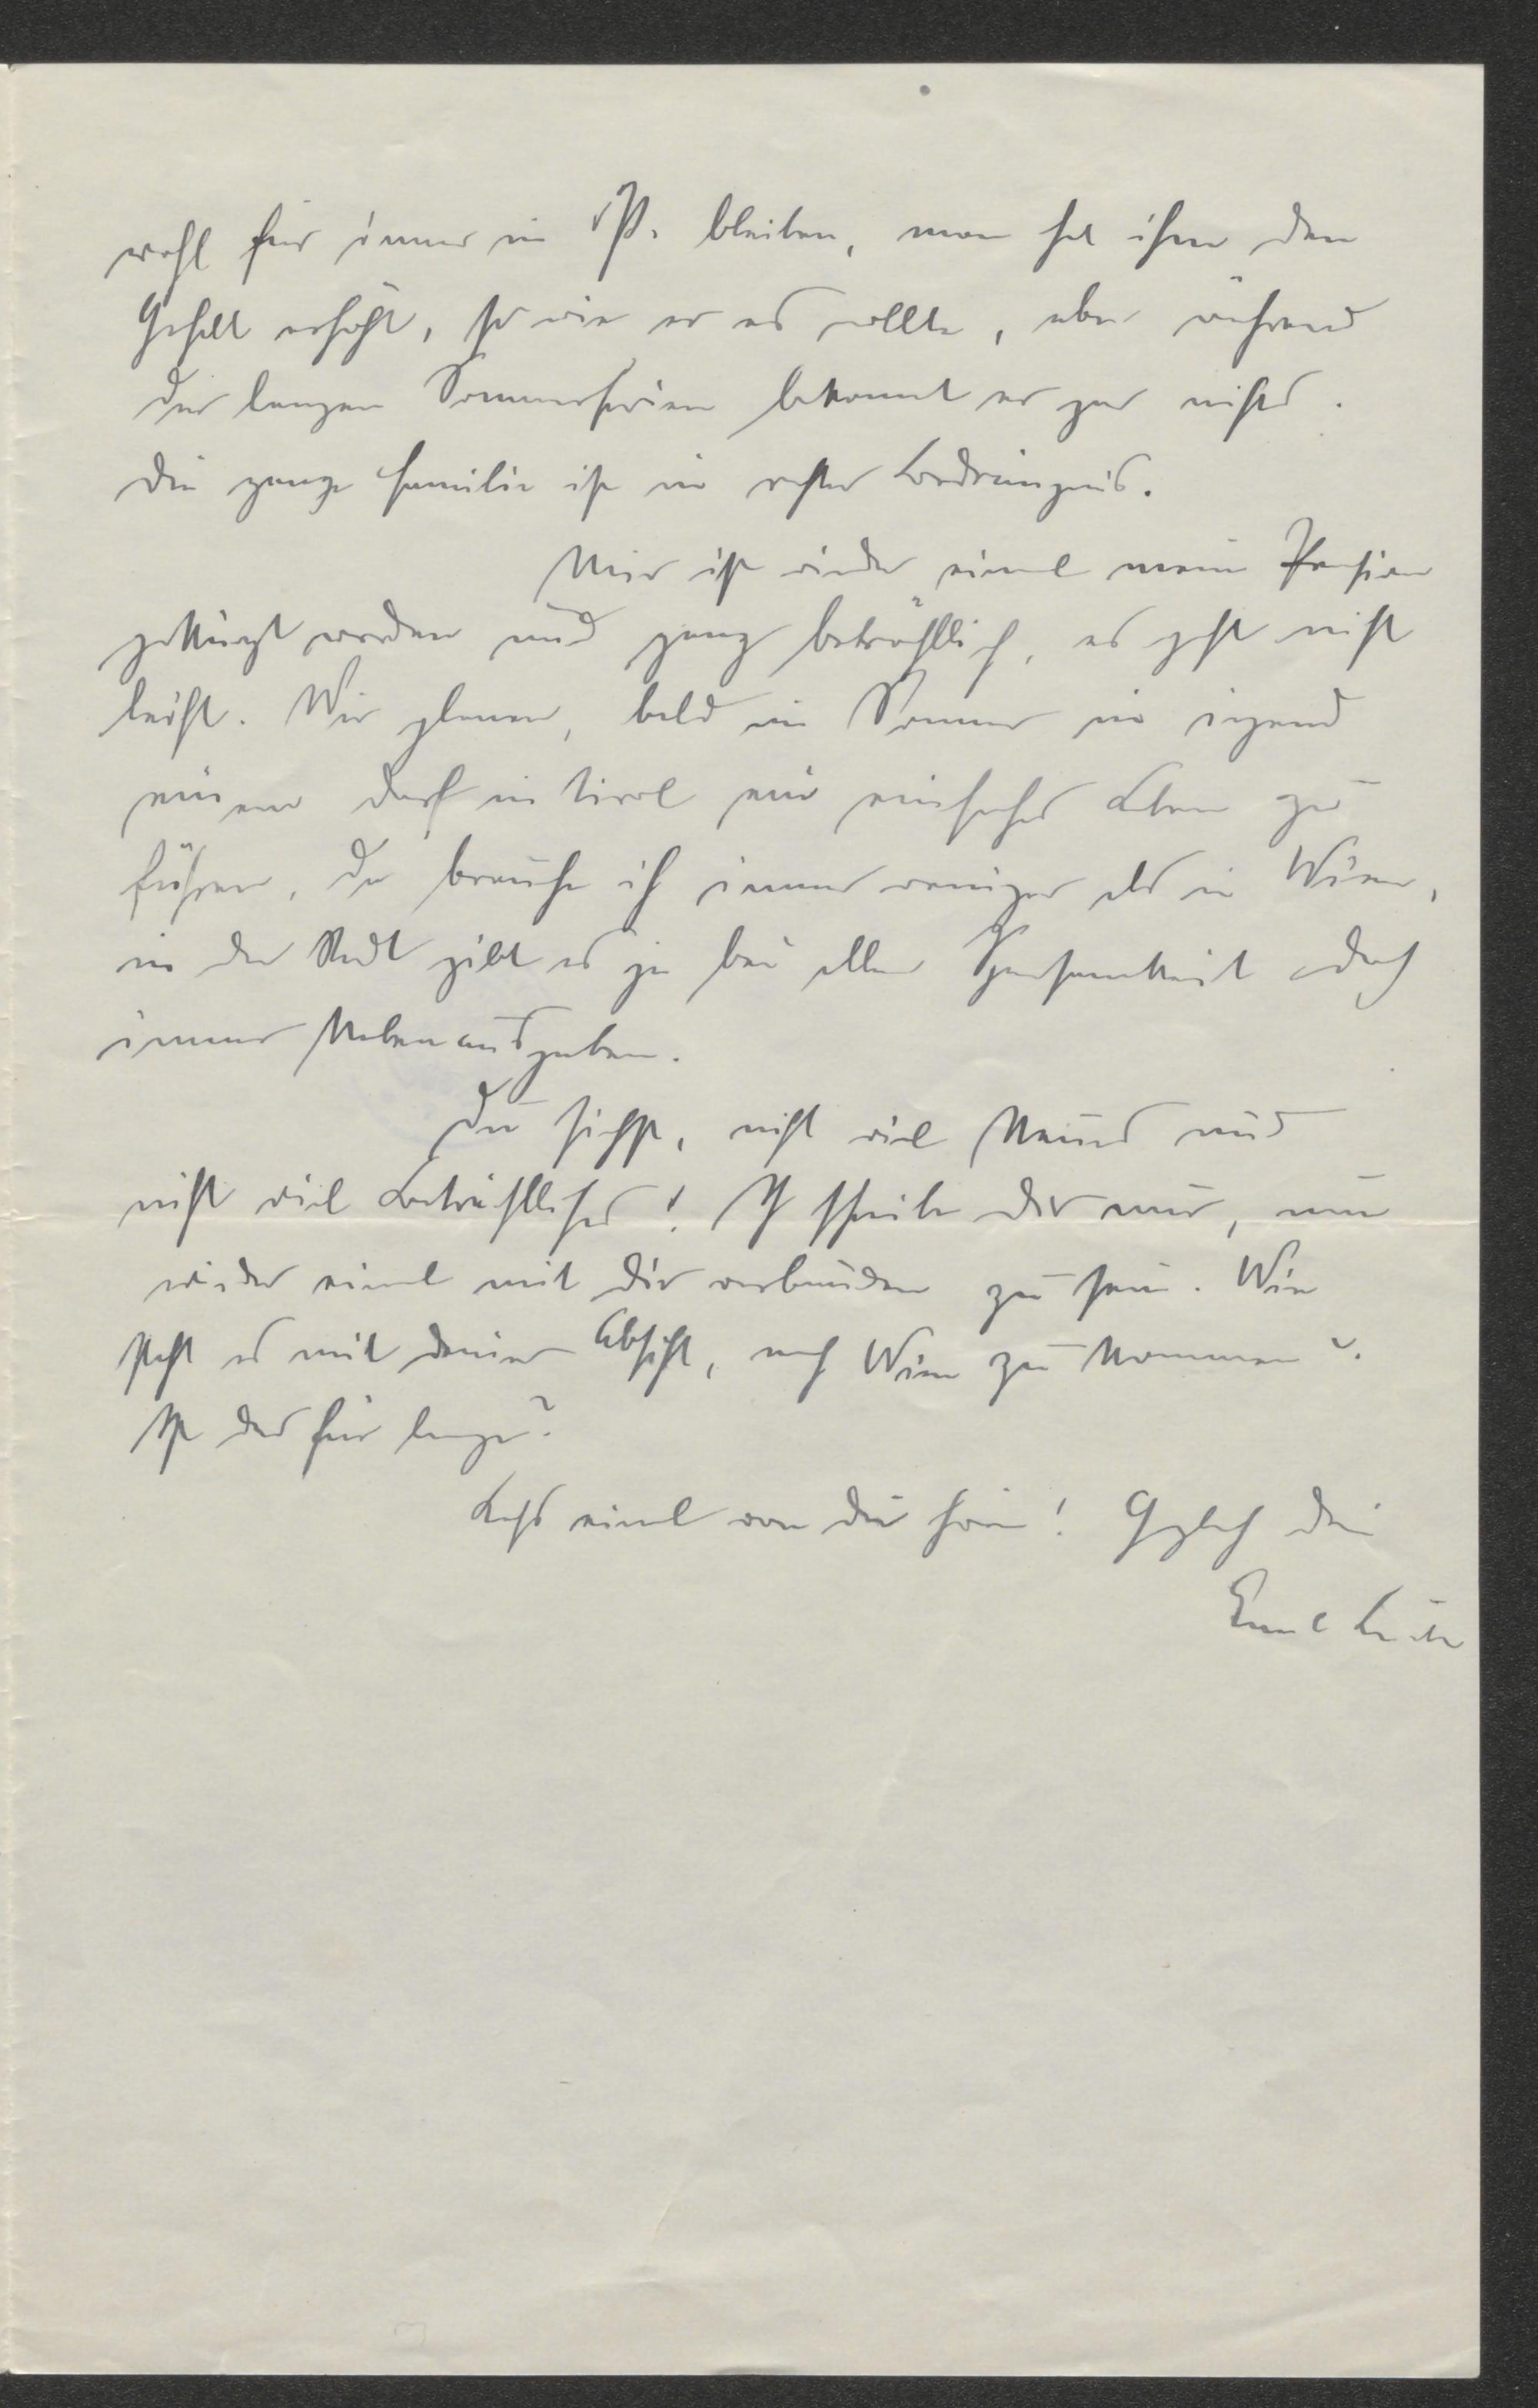 wohl für immer in P. bleiben, man hat ihm den
Gehalt erhöht, so wie er es wollte, aber während
der langen Sommerferien bekommt er gar nichts.
Die ganze Familie ist in rechter Bedrängnis.
Mir ist wieder einmal meine Pension
gekürzt worden und ganz beträchtlich, es geht nicht
leicht. Wir planen, bald im Sommer in irgend
einem Dorf in Tirol ein einfaches Leben zu
führen, da brauche ich immer weniger als in Wien,
in der Stadt gibt es ja bei aller Sparsamkeit doch
immer Nebenausgaben.
Du siehst, nicht viel Neues und
nicht viel Beträchtliches! Ich schreibe dir nur, um
wieder einmal mit dir verbunden zu sein. Wie
steht es mit deiner Absicht, nach Wien zu kommen?
Ist das für lange?
Lass einmal von dir hören! Herzlich dein
Emil